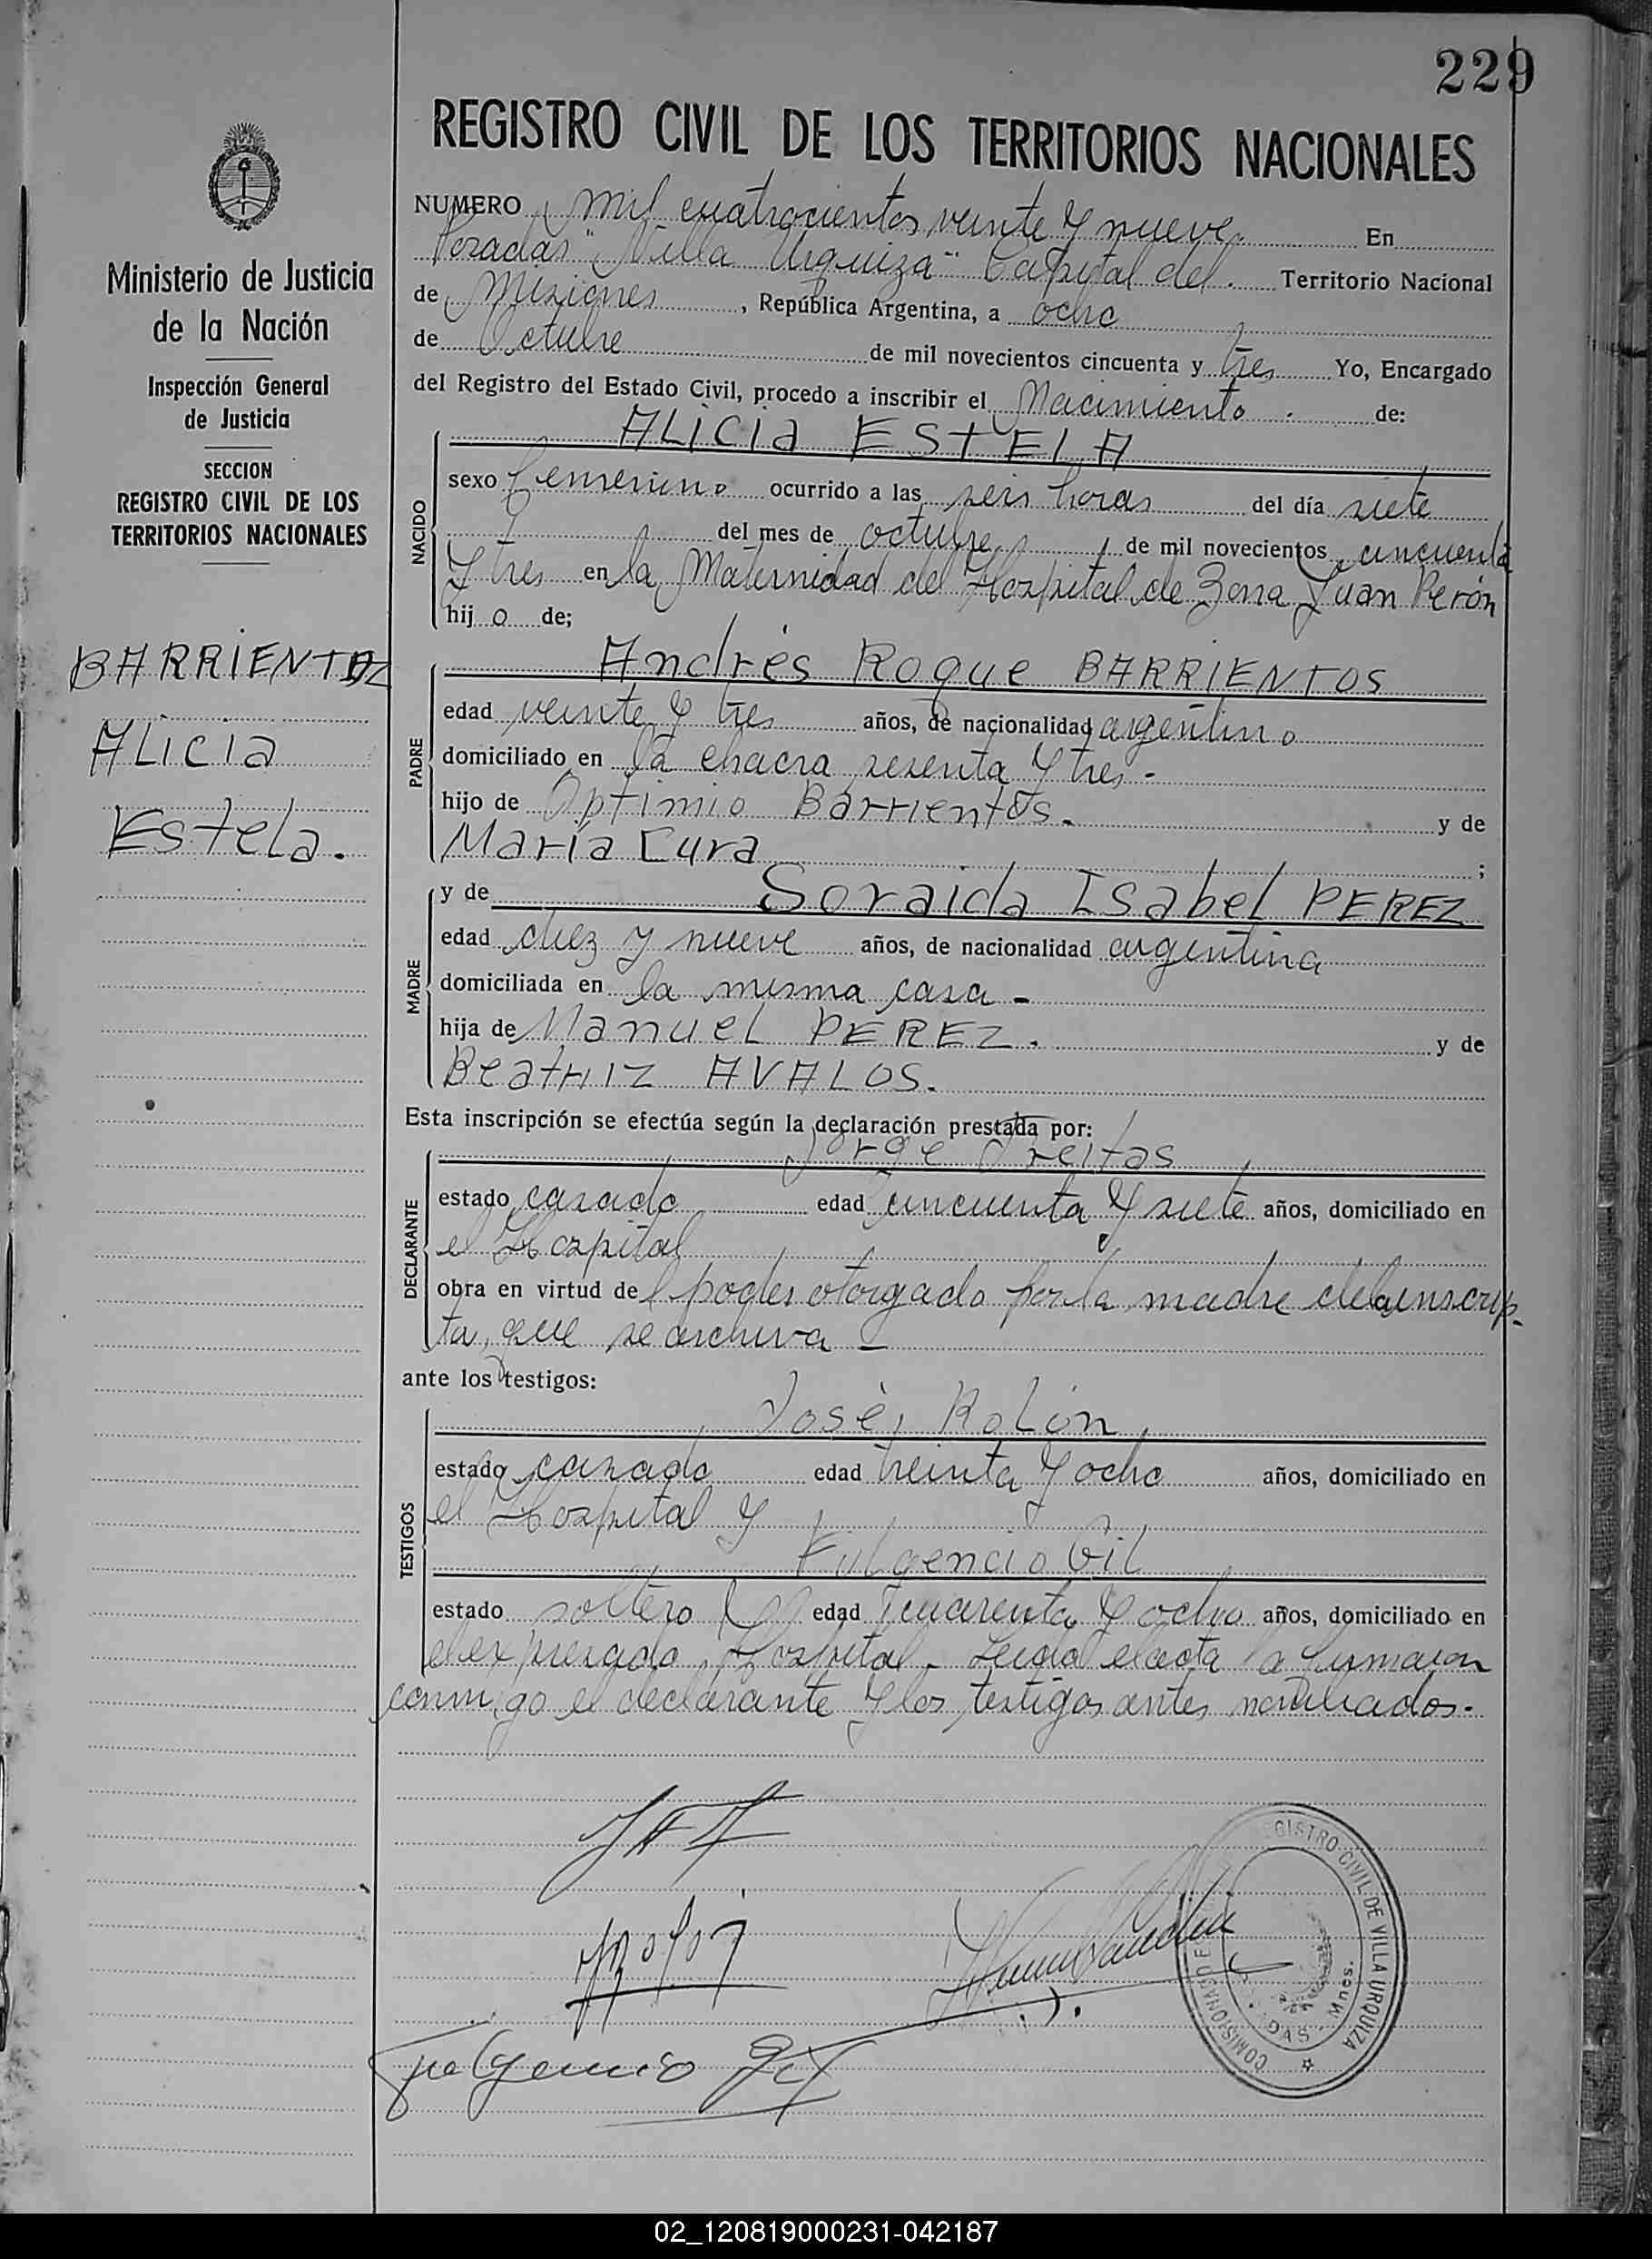 229
REGISTRO CIVIL DE LOS TERRITORIOS NACIONALES
Ministerio de Justicia
de la Nación
Inspección General
de Justicia
SECCION
REGISTRO CIVIL DE LOS
TERRITORIOS NACIONALES
BARRIENTOS
ALICIA
Estela.
NUMERO mil cuatrocientos veinte y nueve. En
Posadas "Villa Urquiza" Capital del Territorio Nacional
de Misiones, República Argentina, a ocho
de Octubre de mil novecientos cincuenta y tres Yo, Encargado
del Registro del Estado Civil, procedo a inscribir el Nacimiento de:
NACIDO
ALICIA ESTELA
sexo femenino ocurrido a las seis horas del día siete
del mes de octubre de mil novecientos cincuenta
y tres en la Maternidad del Hospital de Zona Juan Perón
hij o de;
PADRE
Andrés Roque BARRIENTOS
edad veinte y tres años, de nacionalidad argentino
domiciliado en la chacra sesenta y tres -
hijo de Optimio Barrientos. y de
María Cura ;
MADRE
y de Soraida Isabel PEREZ
edad diez y nueve años, de nacionalidad argentina
domiciliada en la misma casa -
hija de Manuel PEREZ. y de
Beatriz AVALOS.
Esta inscripción se efectúa según la declaración prestada por:
DECLARANTE
Jorge Freitas
estado casado edad cincuenta y siete años, domiciliado en
el Hospital
obra en virtud del poder otorgado por la madre de la inscrip-
ta, que se archiva -
ante los testigos:
TESTIGOS
José Rolón
estado casado edad treinta y ocho años, domiciliado en
el Hospital y
Fulgencio Gil
estado soltero edad cuarenta y ocho años, domiciliado en
el expresado Hospital. Leida el acta la firmaron
conmigo el declarante y los testigos antes nombrados.-
Fulgencio Gil
REGISTRO CIVIL DE VILLA URQUIZA
Mnes.
02_120819000231-042187